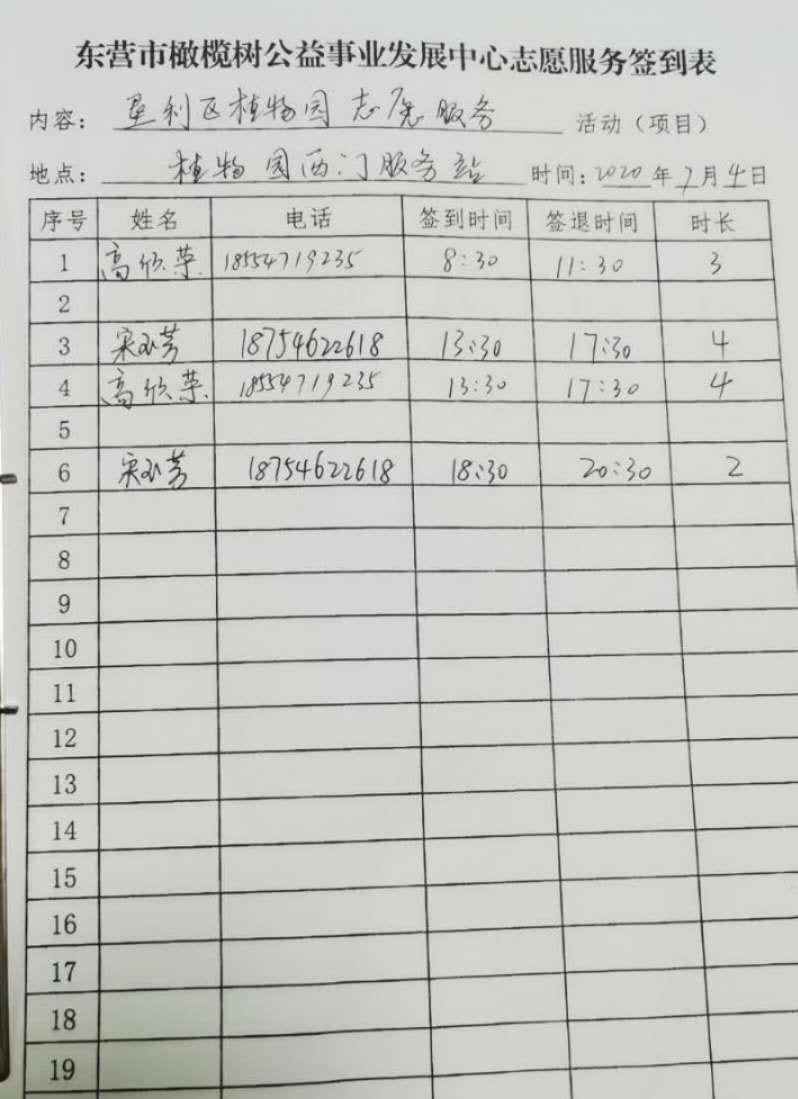 东营市橄榄树公益事业发展中心志愿服务签到表
内容： 垦利区植物园志愿服务 活动（项目）
地点： 植物园西门服务站 时间：2020年7月4日
序号 姓名 电话 签到时间 签退时间 时长
1 高欣荣 18554719235 8:30 11:30 3
2
3 宋玉芳 18754622618 13:30 17:30 4
4 高欣荣 18554719235 13:30 17:30 4
5
6 宋玉芳 18754622618 18:30 20:30 2
7
8
9
10
11
12
13
14
15
16
17
18
19